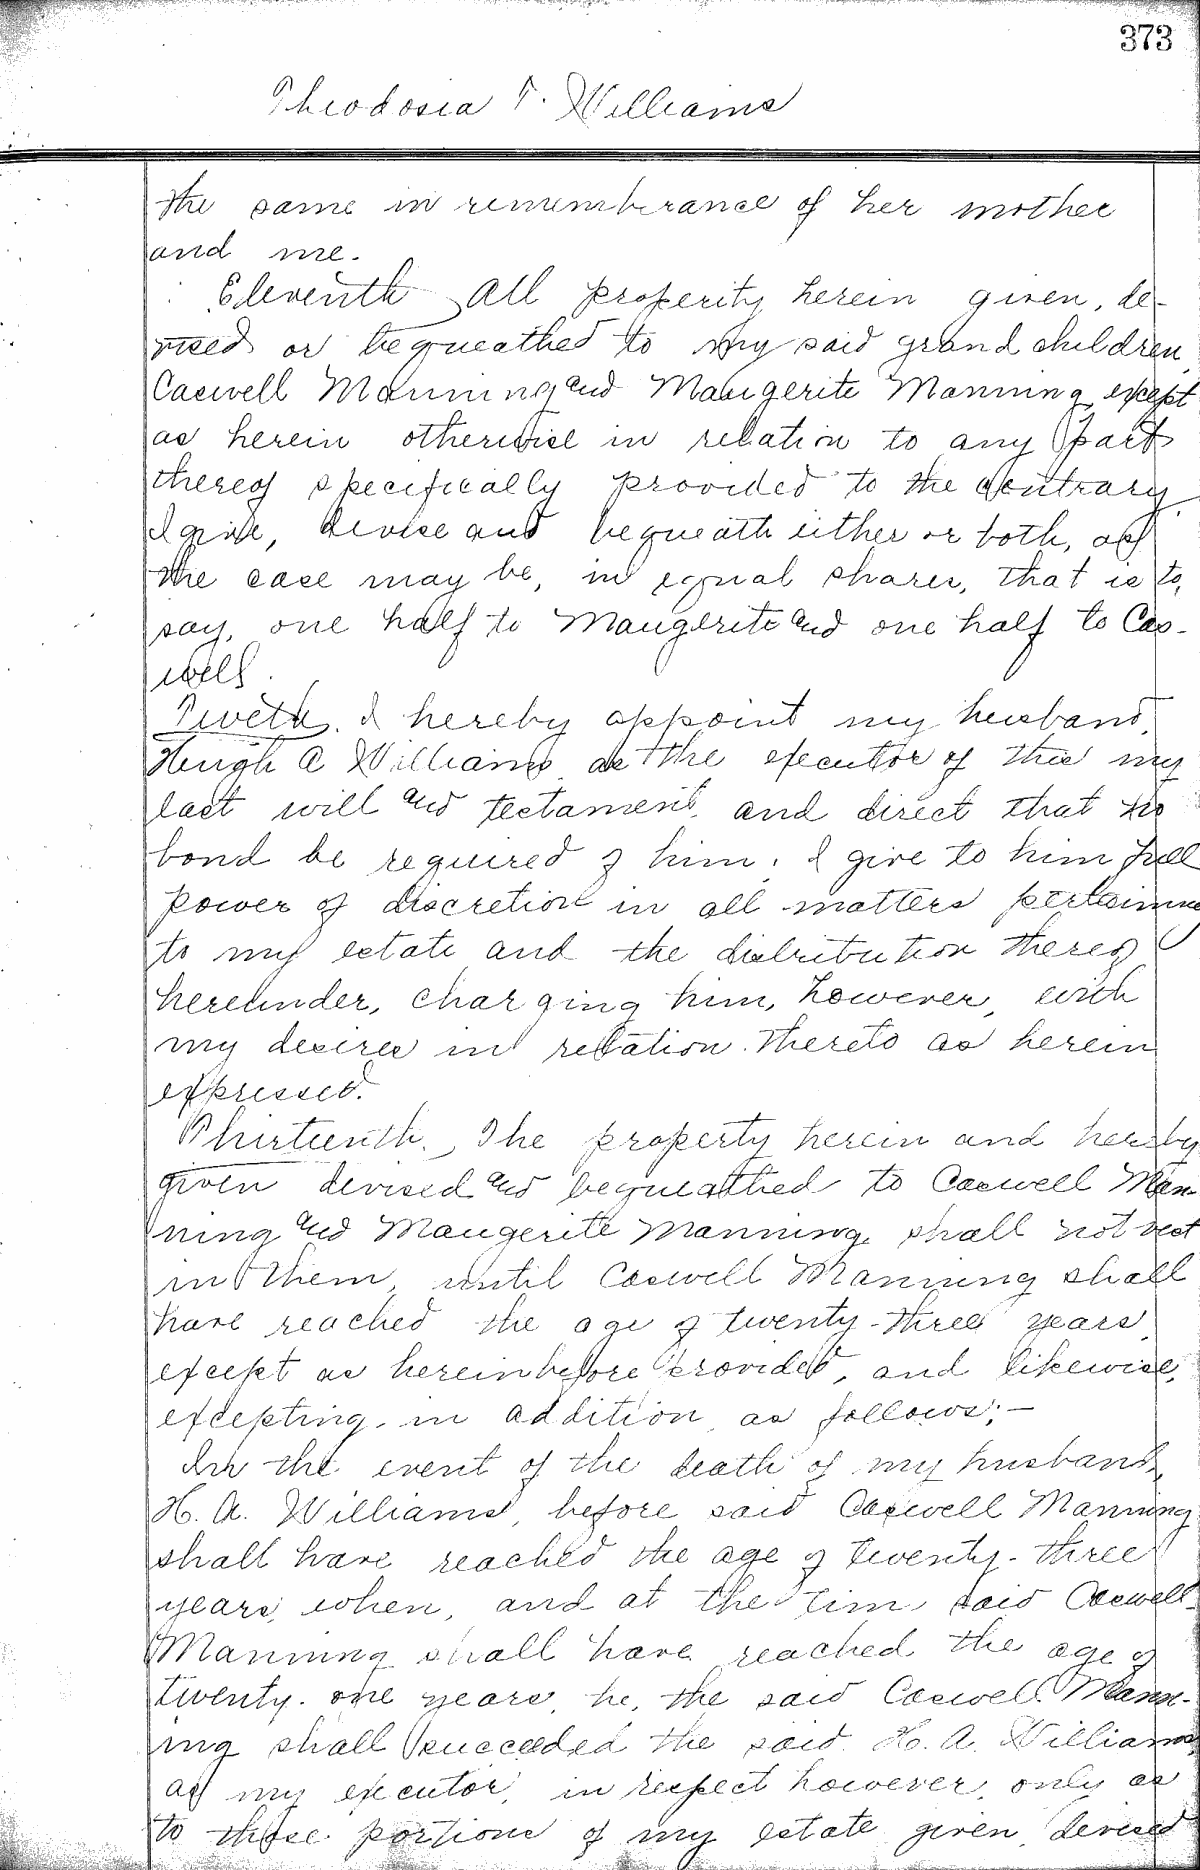 373
Theodosia T. Williams
the same in remembrance of her mother
and me.
Eleventh All property herein given, de-
vised or bequeathed to my said grand children,
Caswell Manning and Maugerite Manning, except
as herein otherwise in relation to any part
thereof specifically provided to the contrary,
I give, devise and bequeath either or both, as
the case may be, in equal shares, that is to,
say, one half to Maugerite and one half to Cas-
well.
Twelth. I hereby appoint my husband,
Hugh A Williams as the executor of this my
last will and testament, and direct that no
bond be required of him. I give to him full
power of discretion in all matters pertaining
to my estate and the distribution thereof
hereunder, charging him, however, with
my desires in relation thereto as herein
expressed.
Thirteenth. The property herein and hereby
given devised and bequeathed to Caswell Man-
ning and Maugerite Manning, shall not vest
in them, until Caswell Manning shall
have reached the age of twenty-three years,
except as hereinbefore provided, and likewise,
excepting, in addition, as follows;-
In the event of the death of my husband,
H. A. Williams, before said Caswell Manning
shall have reached the age of twenty-three
years, when, and at the time said Caswell
Manning shall have reached the age of
twenty-one years, he, the said Caswell Mann-
ing shall succeeded the said H. A. Williams,
as my executor, in respect however, only as
to those portions of my estate given, devised